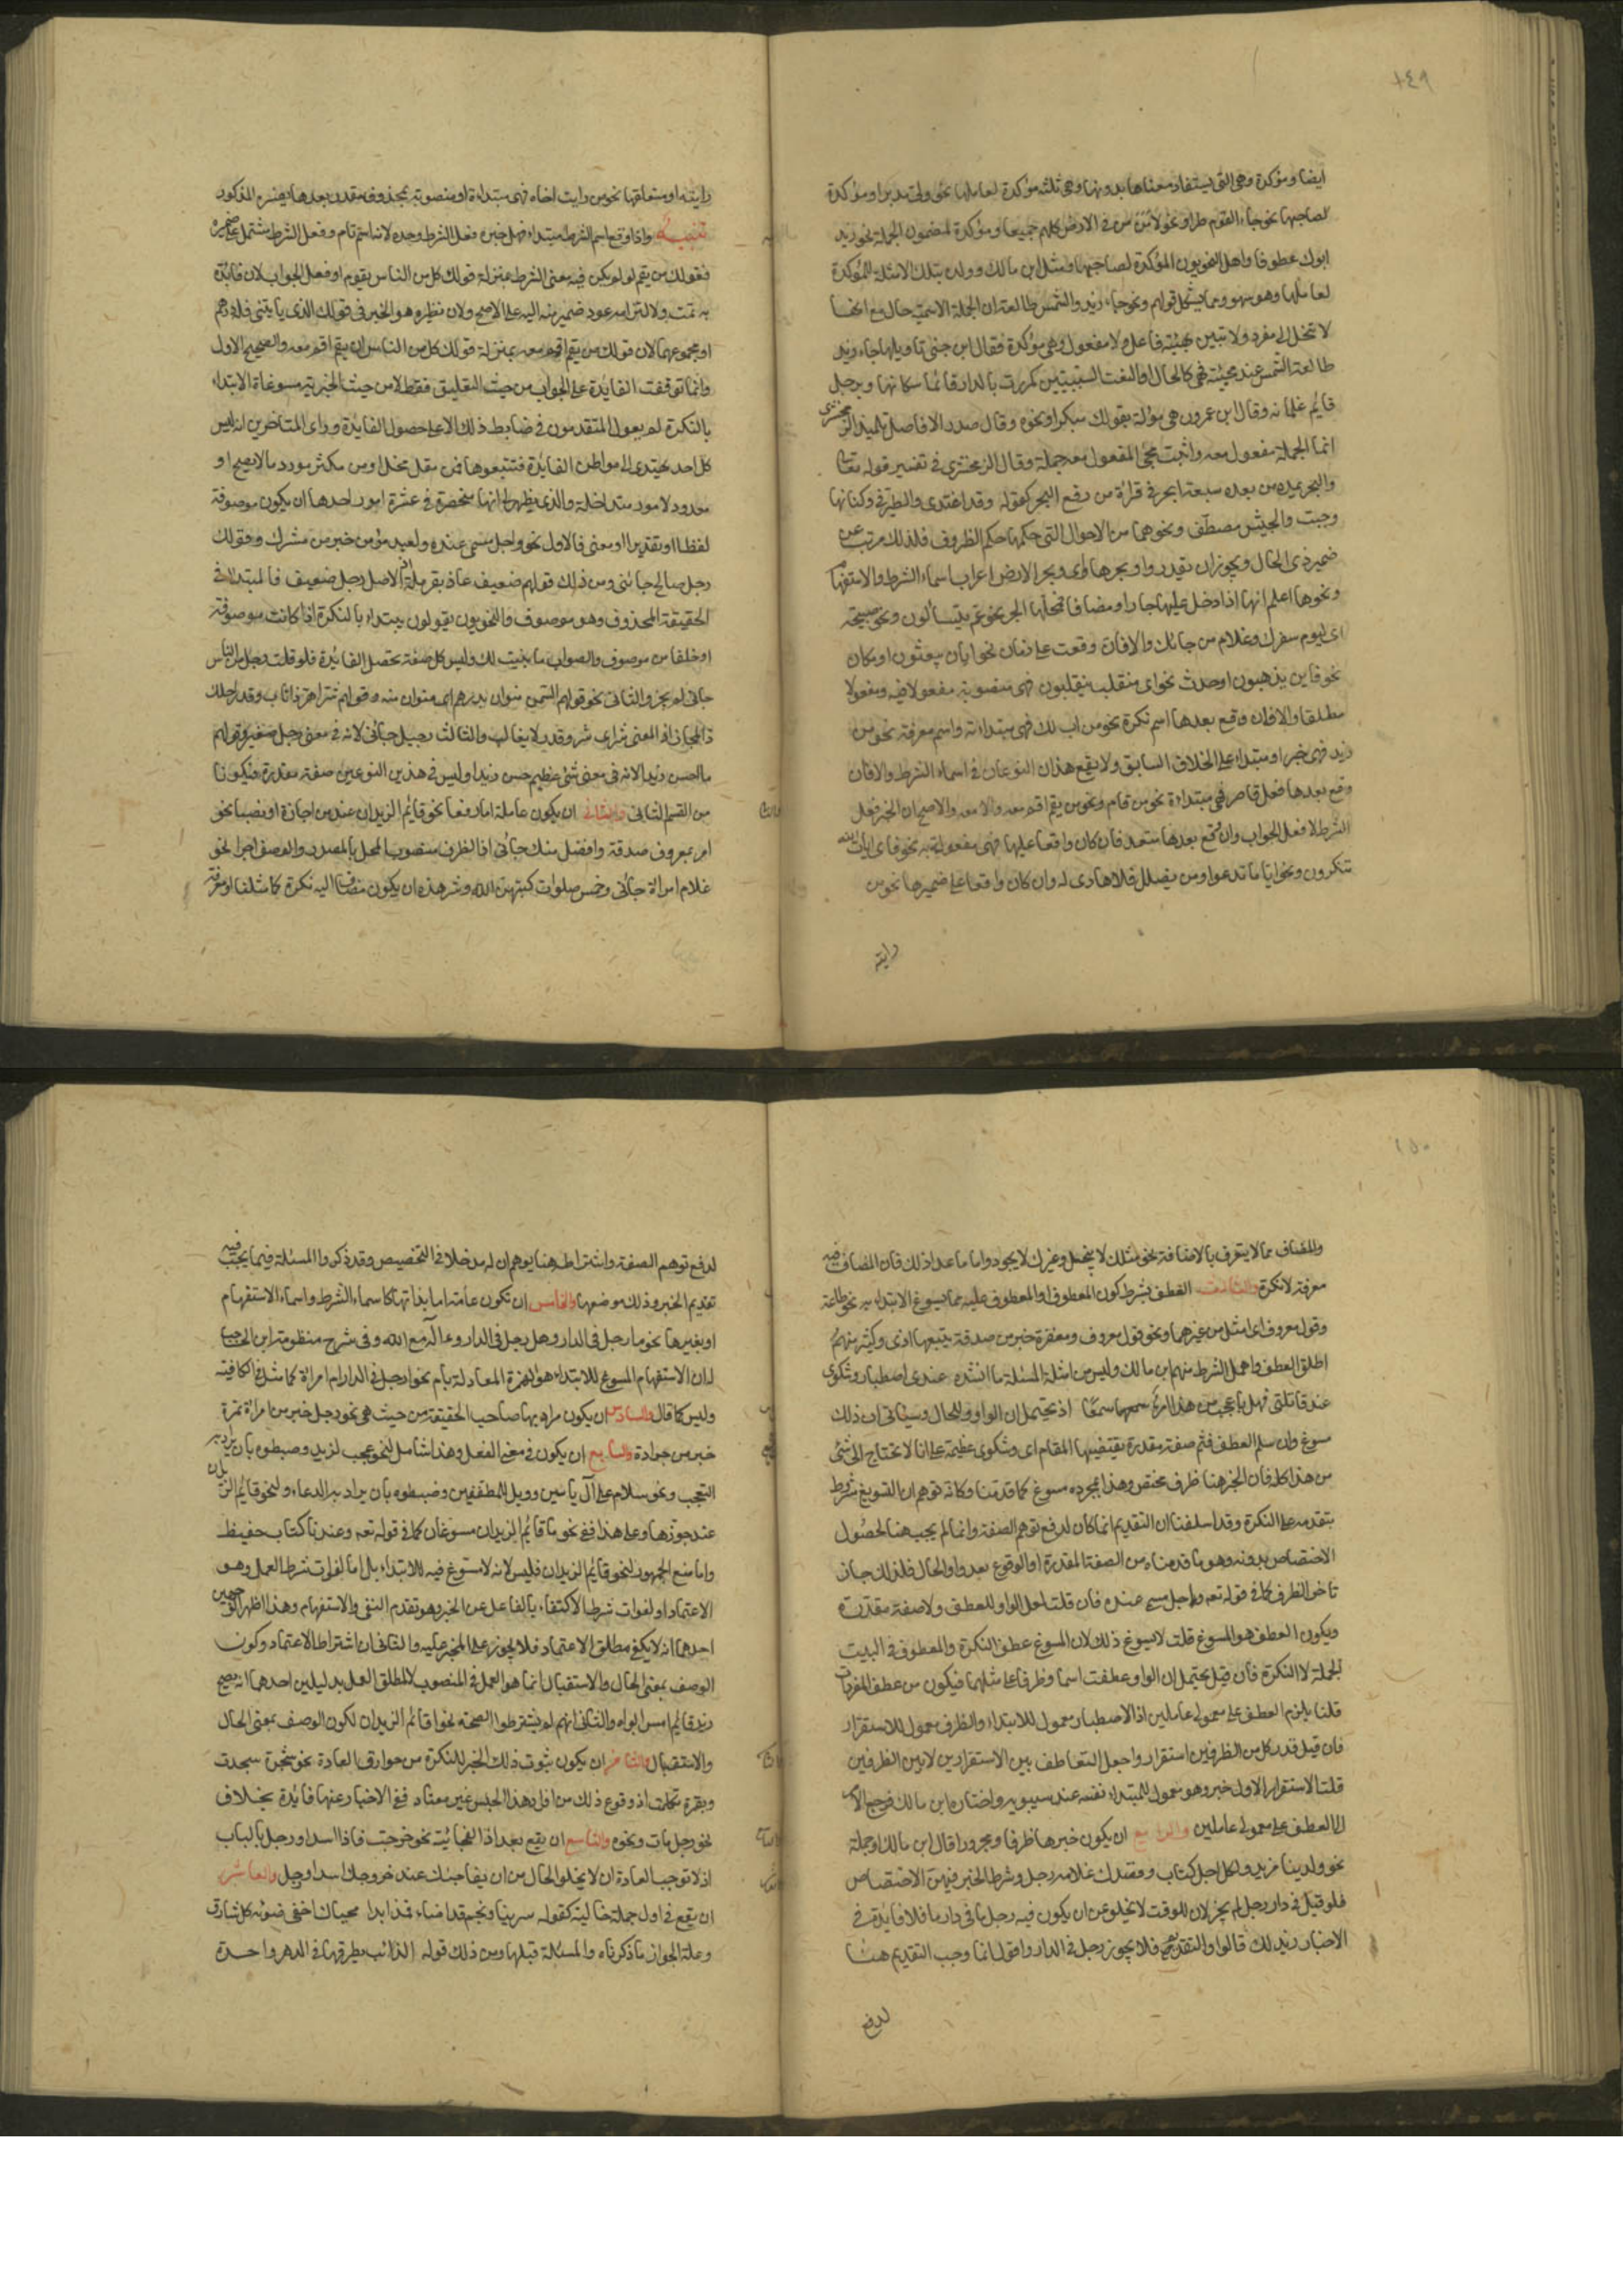 ٢٤٩
ايضا ومؤكدة وهى التى يستفاد معناها بدونها وهى ثلثه مؤكدة لعاملها نحو ولى مدبرا ومؤكدة
لصاحبها نحو جاء القوم طرا ونحو لآمن من فى الارض كلهم جميعا ومؤكدة لمضمون الجملة نحو زيد
ابوك عطوفا واهمل النحويون المؤكدة لصاحبها ومثل ابن مالك وولده بتلك الامثلة للمؤكدة
لعاملها وهو سهو ومما يشكل قولهم ونحو جاء زيد والشمس طالعة ان الجملة الاسمية حال مع انها
لا تنحل الى مفرد ولا تبين هيئة فاعل ولا مفعول ولا هى مؤكدة فقال ابن جنى تاويلها جاء زيد
طالعة الشمس عند مجيئه فهى كالحال او النعت السببيين كمررت بالدار قائما سكانها وبرجل
قايم غلمانه وقال ابن عمرون هى مؤلة بقولك مبكرا ونحوه وقال صدر الافاضل تلميذ الزمخشرى
انما الجملة مفعول معه واثبت مجئ المفعول معه جملة وقال الزمخشرى فى تفسير قوله تعالى
والبحر يمده من بعده سبعة ابحر فى قراءة من رفع البحر كقوله وقد اغتدى والطير فى وكناتها
وجئت والجيش مصطف ونحوهما من الاحوال التى حكمها حكم الظروف فلذلك عريت عن
ضمير ذى الحال ويجوز ان تقدر واو بحرها اى وبحر الارض اعراب اسماء الشرط والاستفهام
ونحوها اعلم انها اذا دخل عليها جار او مضاف فمحلها الجر نحو عم يتسألون ونحو صبيحة
اى يوم سفرك وغلام من جاءك والا فان وقعت على زمان نحو ايان يبعثون او مكان
نحو فاين يذهبون او حدث نحو اى منقلب ينقلبون فهى منصوبة مفعولا فيه ومفعولا
مطلقا والا فان وقع بعدها اسم نكرة نحو من اب لك فهى مبتداءة او اسم معرفة نحو من
زيد فهى خبر او مبتداء على الخلاف السابق ولا يقع هذان النوعان فى اسماء الشرط والا فان
وقع بعدها فعل قاصر فهى مبتداءة نحو من قام ونحو من يقم اقم معه والاصح ان الخبر فعل
الشرط لا فعل الجواب وان وقع بعدها متعد فان كان واقعا عليها فهى مفعولة به نحو فاى ايات الله
تنكرون ونحو ايا ما تدعوا ومن يضلل فلا هادى له وان كان واقعا على ضميرها نحو من
رايته
رايته او متعلقها نحو من رايت اخاه فهى مبتداءة او منصوبة بمحذوف مقدر بعدها يفسره المذكور
تنبيه واذا وقع اسم الشرط مبتداء فهل خبره فعل الشرط وحده لانه اسم تام وفعل الشرط مشتمل على ضميره
فقولك من يقم لو لم يكن فيه معنى الشرط بمنزلة قولك كل من الناس يقوم او فعل الجواب لان الفائدة
به تمت ولالتزامهم عود ضمير منه اليه على الاصح ولان نظيره هو الخبر فى قولك الذى ياتينى فله درهم
او مجموعهما لان قولك من يقم اقم معه بمنزلة قولك كل من الناس ان يقم اقم معه والصحيح الاول
وانما توقفت الفايدة على الجواب من حيث التعليق فقط لا من حيث الخبرية مسوغات الابتداء
بالنكرة لم يعول المتقدمون فى ضابط ذلك الا على حصول الفايدة وراى المتاخرين انه ليس
كل احد يهتدى الى مواطن الفايدة فتتبعوها فمن مقل مخل او من مكثر مورد ما لا يصح او
معدود لامور متداخلة والذى يظهر لى انها منحصرة فى عشرة امور احدها ان يكون موصوفة
لفظا او تقديرا او معنى فالاول نحو واجل مسمى عنده ولعبد مؤمن خير من مشرك وقولك
رجل صالح جائنى ومن ذلك قولهم ضعيف عاذ بقرملة اذ الاصل رجل ضعيف فالمبتداء فى
الحقيقة المحذوف وهو موصوف والنحويون يقولون يبتداء بالنكرة اذا كانت موصوفة
او خلفا من موصوف والصواب ما بينت لك وليس كل صفة تحصل الفائدة فلو قلت رجل من الناس
جائى لم يجز والثانى نحو قولهم السمن منوان بدرهم اى منوان منه وقولهم شر اهر ذا ناب وقدر احلك
ذا المجاز اذ المعنى شر اى شر وقدر لا يغالب والثالث رجيل جائنى لانه فى معنى رجل صغير وقولهم
ما احسن زيدا لانه فى معنى شئ عظيم حسن زيدا وليس فى هذين النوعين صفة مقدرة فيكونا
من القسم الثانى والثانى ان يكون عاملة اما رفعا نحو قائم الزيدان عند من اجازه او نصبا نحو
امر بمعروف صدقة وافضل منك جائى اذ الظرف منصوب المحل بالمصدر والوصف او جرا نحو
غلام امراة جائنى وخمس صلوات كتبهن الله وشرط هذه ان يكون مضافا اليه نكرة كما مثلنا او معرفة
والمضاف مما لا يتعرف بالاضافة نحو مثلك لا يبخل وغيرك لا يجود واما ما عدا ذلك فان المضاف فيه
معرفة لا نكرة والثالث العطف بشرط كون المعطوف او المعطوف عليه مما يسوغ الابتداء به نحو طاعة
وقول معروف اى امثل من غيرهما ونحو قول معروف ومغفرة خير من صدقة يتبعها اذى وكثير منهم
اطلق العطف واهمل الشرط منهم ابن مالك وليس من امثلة المسئلة ما انشده عندى اصطبار وشكوى
عند قاتلتى فهل باعجب من هذا امرء سمعا اذ يحتمل ان الواو للحال وسياتى ان ذلك
مسوغ وان سلم العطف فثم صفة مقدرة يقتضيها المقام اى وشكوى عظيمة على انا لا نحتاج الى شئ
من هذا كله فان الخبر هنا ظرف مختص وهذا بمجرده مسوغ كما قدمنا وكانه توهم ان التسويغ مشروط
بتقدمه على النكرة وقد اسلفنا ان التقديم انما كان لدفع توهم الصفة وانما لم يجب هنا لحصول
الاختصاص بدونه وهو ما قدمناه من الصفة المقدرة او الوقوع بعد واو الحال فلذلك جاز
تاخر الظرف كما فى قوله تعه واجل مسمى عنده فان قلت لعل الواو للعطف ولا صفة مقدرة
ويكون العطف هو المسوغ قلت لا يسوغ ذلك لان المسوغ عطف النكرة والمعطوف فى البيت
الجملة لا النكرة فان قيل يحتمل ان الواو عطفت اسما وظرفا على مثلهما فيكون من عطف المفردات
قلنا يلزم العطف على معمولى عاملين اذ الاصطبار معمول للابتداء والظرف معمول للاستقرار
فان قيل قدر كل من الظرفين استقرار واجعل التعاطف بين الاستقرارين لا بين الظرفين
قلت الاستقرار الاول خبر وهو معمول للمبتداء نفسه عند سيبويه واختاره ابن مالك فرجع الامر
الى العطف على معمولى عاملين والرابع ان يكون خبرها ظرفا او مجرورا قال ابن مالك او جملة
نحو ولدينا مزيد ولكل اجل كتاب وقصدك غلامه رجل وشرط الخبر فيهن الاختصاص
فلو قيل فى دار رجل لم يجز لان الوقت لا يخلو عن ان يكون فيه رجل ما فى دار ما فلا فايدة فى
الاخبار بذلك قالوا والتقديم فلا يجوز رجل فى الدار واقول انما وجب التقديم هنا
لدفع
لدفع توهم الصفة واشتراطه هنا يوهم ان له مدخلا فى التخصيص وقد ذكروا المسئلة فيما يجب فيه
تقديم الخبر وذلك موضعها والخامس ان تكون عامة اما بذاتها كاسماء الشرط واسماء الاستفهام
او بغيرها نحو ما رجل فى الدار وهل رجل فى الدار وءاله مع الله وفى شرح منظومة ابن الحاجب
له ان الاستفهام المسوغ للابتداء هو الهمزة المعادلة بام نحو ارجل فى الدار ام امراة كما مثل فى الكافية
وليس كما قال والسادس ان يكون مراد بها صاحب الحقيقة من حيث هى نحو رجل خير من امراة تمرة
خير من جرادة والسابع ان يكون فى معنى الفعل وهذا شامل لنحو عجب لزيد وضبطوه بان يراد به
التعجب ونحو سلام على آل ياسين وويل للمطففين وضبطوه بان يراد بها الدعاء ولنحو قائم الزيدان
عند من جوزها وعلى هذا ففى نحو ما قائم الزيدان مسوغان كما فى قوله تعه وعندنا كتاب حفيظ
واما منع الجمهور لنحو قايم الزيدان فليس لانه لا مسوغ فيه للابتداء بل اما لفوات شرط العمل وهو
الاعتماد او لفوات شرط الاكتفاء بالفاعل عن الخبر وهو تقدم النفى والاستفهام وهذا اظهر الوجهين
احدهما انه لا يكفى مطلق الاعتماد فلا يجوز على المخبر عليه والثانى ان اشتراط الاعتماد وكون
الوصف بمعنى الحال والاستقبال انما هو العمل فى المنصوب لا لمطلق العمل بدليلين احدهما انه يصح
زيد قائم امس ابواه والثانى انهم لم يشترطوا الصحة نحو اقائم الزيدان لكون الوصف بمعنى الحال
والاستقبال والثامن ان يكون ثبوت ذلك الخبر للنكرة من خوارق العادة نحو شجرة سجدت
وبقرة تكلمت اذ وقوع ذلك من افراد هذا الجنس غير معتاد ففى الاخبار عنها فائدة بخلاف
نحو رجل مات ونحوه والتاسع ان يقع بعد اذا الفجائية نحو خرجت فاذا اسد او رجل بالباب
اذ لا توجب العادة ان لا يخلو الحال من ان يفاجئك عند خروجك اسد او رجل والعاشر
ان يقع فى اول جملة حالية كقوله سرينا ونجم قد اضاء فمذ ابدا محياك اخفى ضوئه كل شارق
وعلة الجواز ما ذكرناه والمسئلة قبلها ومن ذلك قوله الذئب يطرقها فى الدهر واحدة